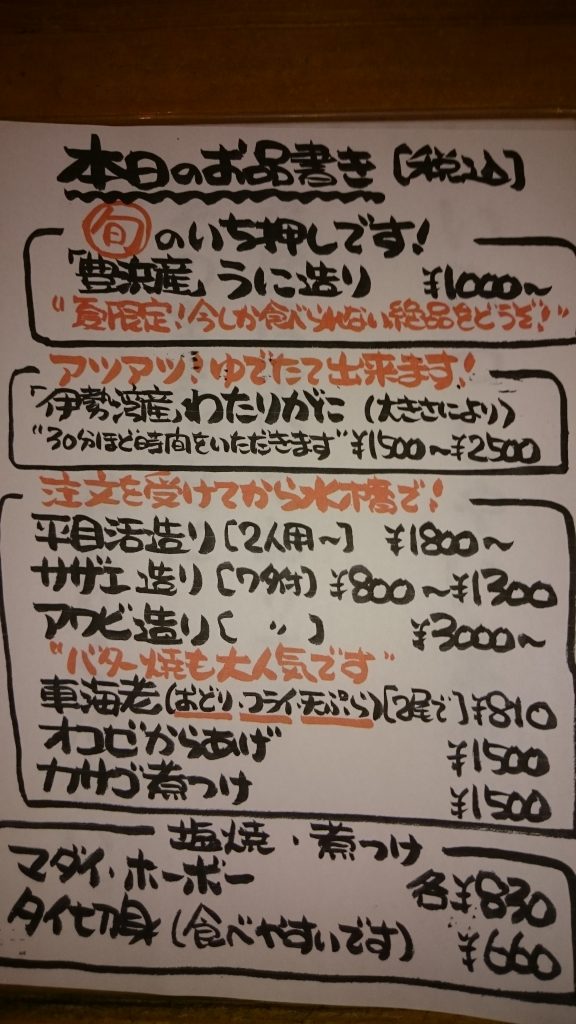 本日のお品書き [税込]
旬のいち押しです!
「豊浜産」うに造り ¥1000～
"夏限定!今しか食べられない絶品をどうぞ!"
アツアツ!ゆでたて出来ます!
「伊勢湾産」わたりがに (大きさにより)
"30分ほど時間をいただきます" ¥1500～¥2500
注文を受けてから水槽で!
平目活造り [2人用～] ¥1800～
サザエ造り [ワタ付] ¥800～¥1300
アワビ造り [ 〃 ] ¥3000～
"バター焼も大人気です"
車海老 (おどり・フライ・天ぷら) [2尾で] ¥810
オコゼからあげ ¥1500
カサゴ煮つけ ¥1500
塩焼・煮つけ
マダイ・ホーボー 各¥830
タイ切身 (食べやすいです) ¥660